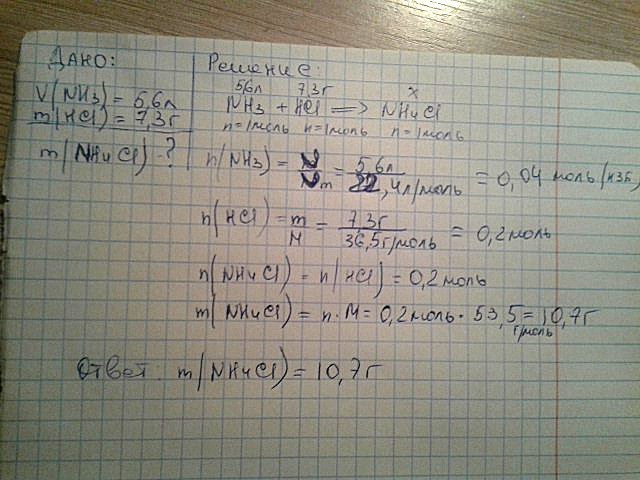 Дано:
V(NH3) = 5,6л
m(HCl) = 7,3г
m(NH4Cl) - ?
Решение:
5,6л 7,3г x
NH3 + HCl => NH4Cl
n=1моль n=1моль n=1моль
n(NH3) = V/Vm = 5,6л/22,4л/моль = 0,04 моль (изб,
n(HCl) = m/M = 7,3г/36,5г/моль = 0,2моль
n(NH4Cl) = n(HCl) = 0,2моль
m(NH4Cl) = n·M = 0,2моль · 53,5 = 10,7г
г/моль
Ответ: m(NH4Cl) = 10,7г